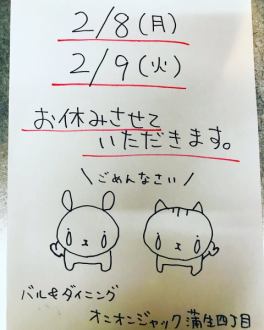 2/8(月)
2/9(火)
お休みさせて
いただきます。
\ごめんなさい/
バル&ダイニング
オニオンジャック 蒲生四丁目